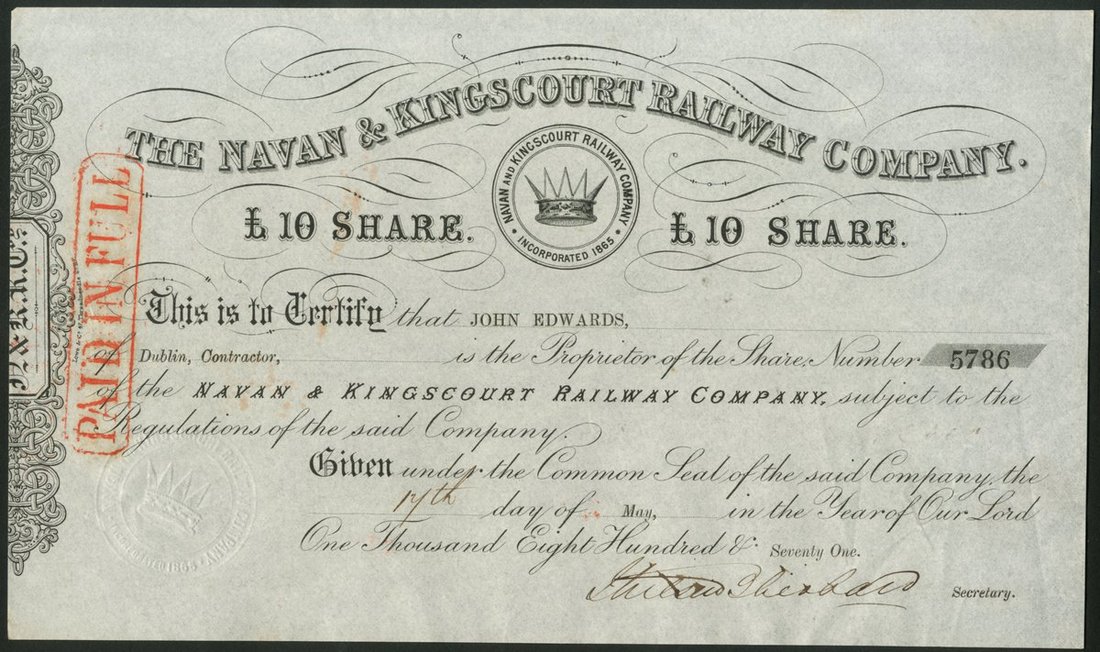 THE NAVAN & KINGSCOURT RAILWAY COMPANY.
NAVAN AND KINGSCOURT RAILWAY COMPANY
• INCORPORATED 1865 •
£10 SHARE. £10 SHARE.
N. & K. R. Co.
PAID IN FULL
This is to Certify that JOHN EDWARDS,
of Dublin, Contractor, is the Proprietor of the Share, Number 5786
of the NAVAN & KINGSCOURT RAILWAY COMPANY, subject to the
Regulations of the said Company.
Given under the Common Seal of the said Company, the
17th day of May, in the Year of Our Lord
One Thousand Eight Hundred & Seventy One.
Secretary.
INCORPORATED 1865